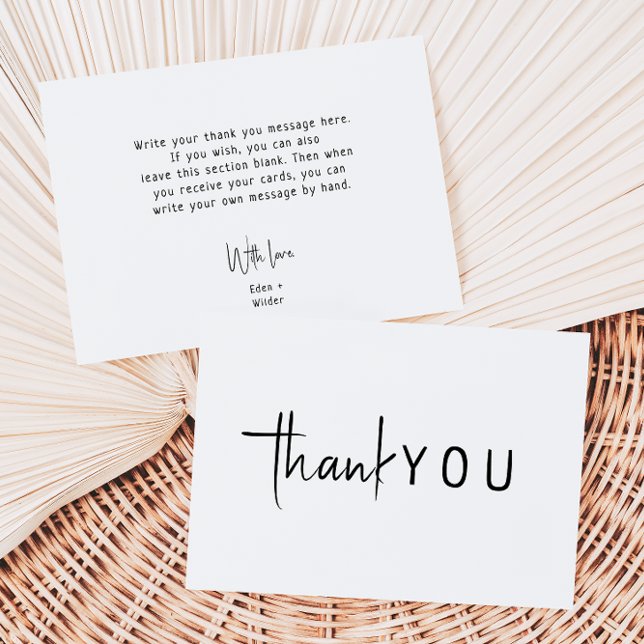 Write your thank you message here.
If you wish, you can also
leave this section blank. Then when
you receive your cards, you can
write your own message by hand.
With love,
Eden +
Wilder
thankYOU